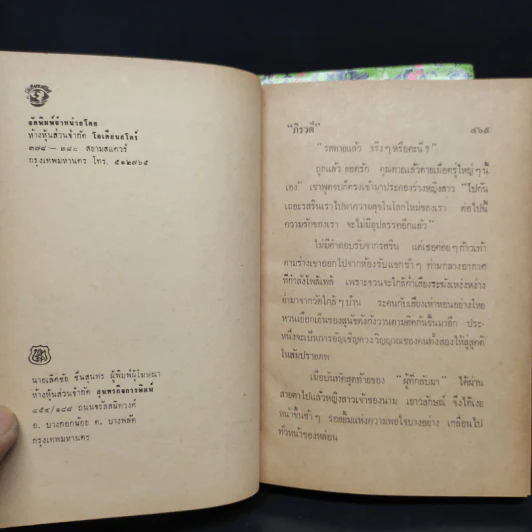 จัดพิมพ์จำหน่ายโดย
ห้างหุ้นส่วนจำกัด โอเดียนสโตร์
๓๗๘ — ๓๘๐ สยามสแควร์
กรุงเทพมหานคร โทร. ๕๑๒๗๖๕
นายเลิศชัย ชื่นสุนทร ผู้พิมพ์ผู้โฆษณา
ห้างหุ้นส่วนจำกัด สุนทรกิจการพิมพ์
๔๕๙/๑๘๙ ถนนจรัลสนิทวงศ์
อ. บางกอกน้อย ต. บางพลัด
กรุงเทพมหานคร
"ภิรวดี"
๔๖๕
"รสตายแล้ว จริงๆหรือคะนี่ ?
ถูกแล้ว ยอดรัก คุณตายแล้วตายเมื่อครู่ใหญ่ๆนี้
เอง" เขาพูดจบก็ตรงเข้ามาประคองร่างหญิงสาว "ไปกัน
เถอะรสรินเราไปหาความสุขในโลกใหม่ของเรา ต่อไปนี้
ความรักของเรา จะไม่มีอุปสรรคอีกแล้ว"
ไม่มีคำตอบรับจากรสริน แต่เธอค่อยๆก้าวเท้า
ตามร่างเขาออกไปจากห้องรับแขกช้าๆ ท่ามกลางอากาศ
ที่กำลังโพล้เพล้ เพราะจวนจะใกล้ค่ำเสียงระฆังเหง่งหง่าง
ย่ำมาจากวัดใกล้ๆบ้าน ระคนกับเสียงเห่าหอนอย่างโหย
หวนเยือกเย็นของสุนัขดังกังวานตามติดกันขึ้นมาอีก ประ-
หนึ่งจะเป็นการอัญเชิญดวงวิญญาณของคนทั้งสองให้สู่สุคติ
ในสัมปรายภพ
เมื่อบันทัดสุดท้ายของ "ผู้ที่กลับมา" ได้ผ่าน
สายตาไปแล้วหญิงสาวเจ้าของนาม เยาวลักษณ์ จึงได้เงย
หน้าขึ้นช้าๆ รอยยิ้มแห่งความพอใจบางอย่าง เกลื่อนไป
ทั่วหน้าของหล่อน